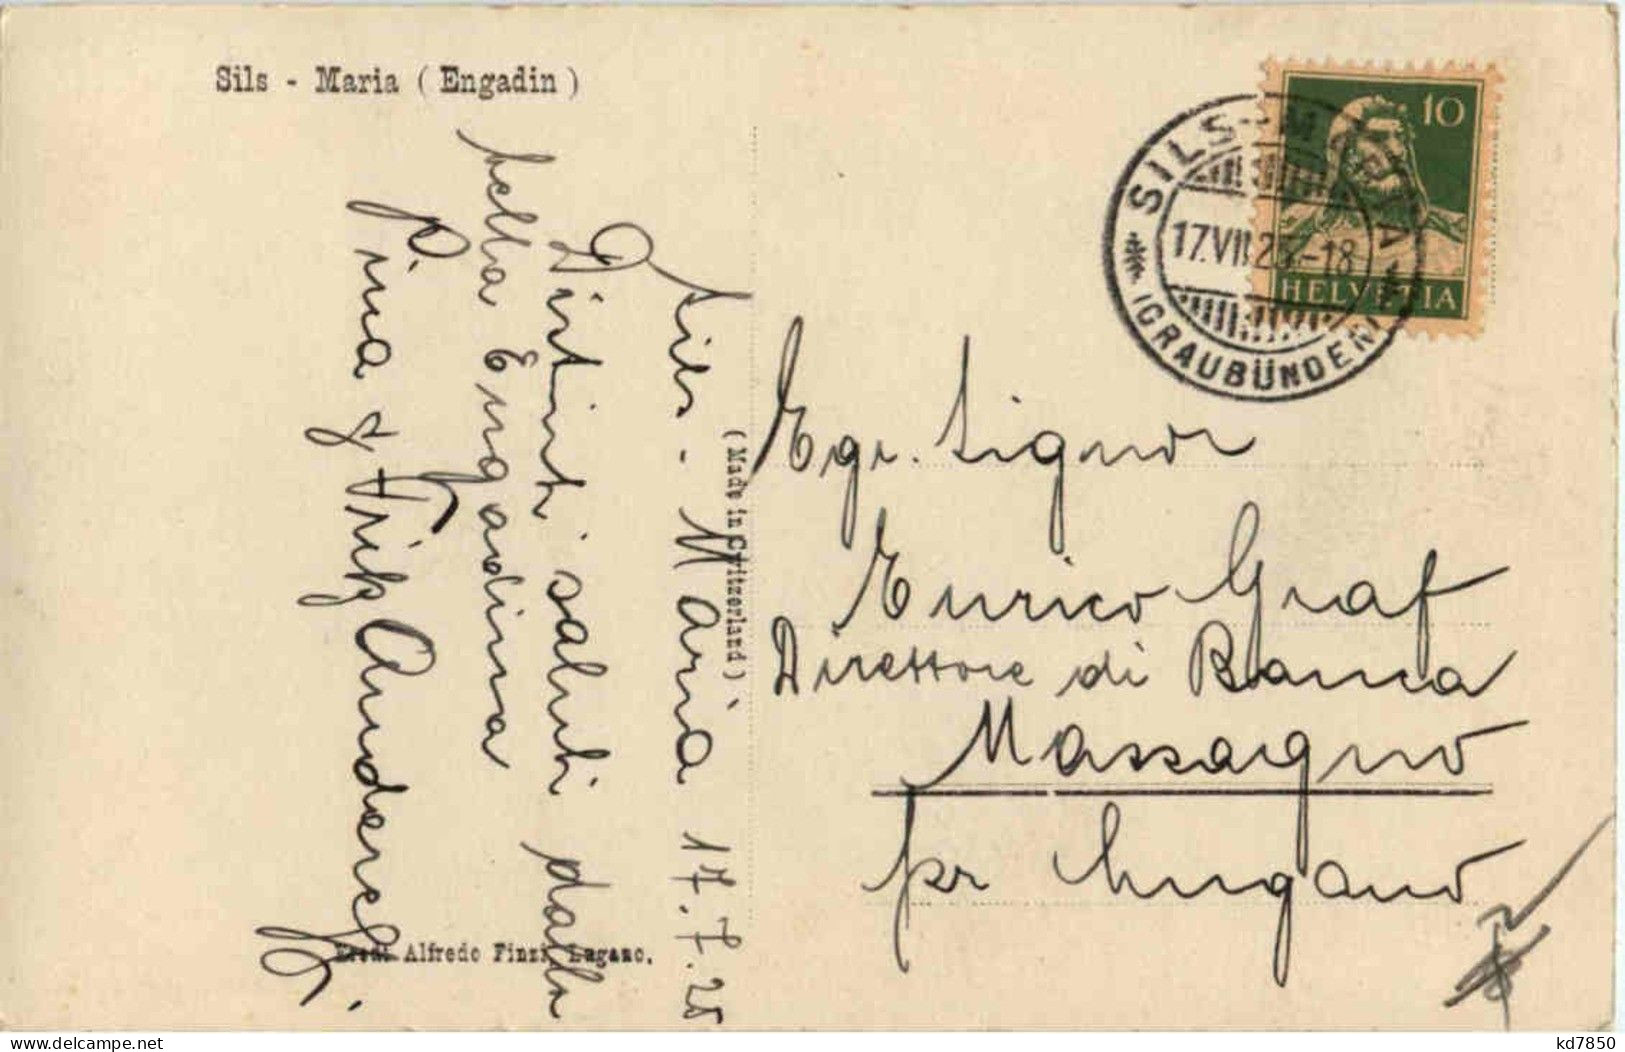 Sils - Maria ( Engadin )
10
HELVETIA
SILS-MARIA
17.VII.25.-18
(GRAUBÜNDEN)
Sils - Maria 17.7.25
Distinti saluti dalla
bella Engadina
Pina & Fritz
(Made in Switzerland)
Egr. Signor
Enrico Graf
Direttore di Banca
Massagno
pr Lugano
Alfredo Finzi, Lugano.
kd7850